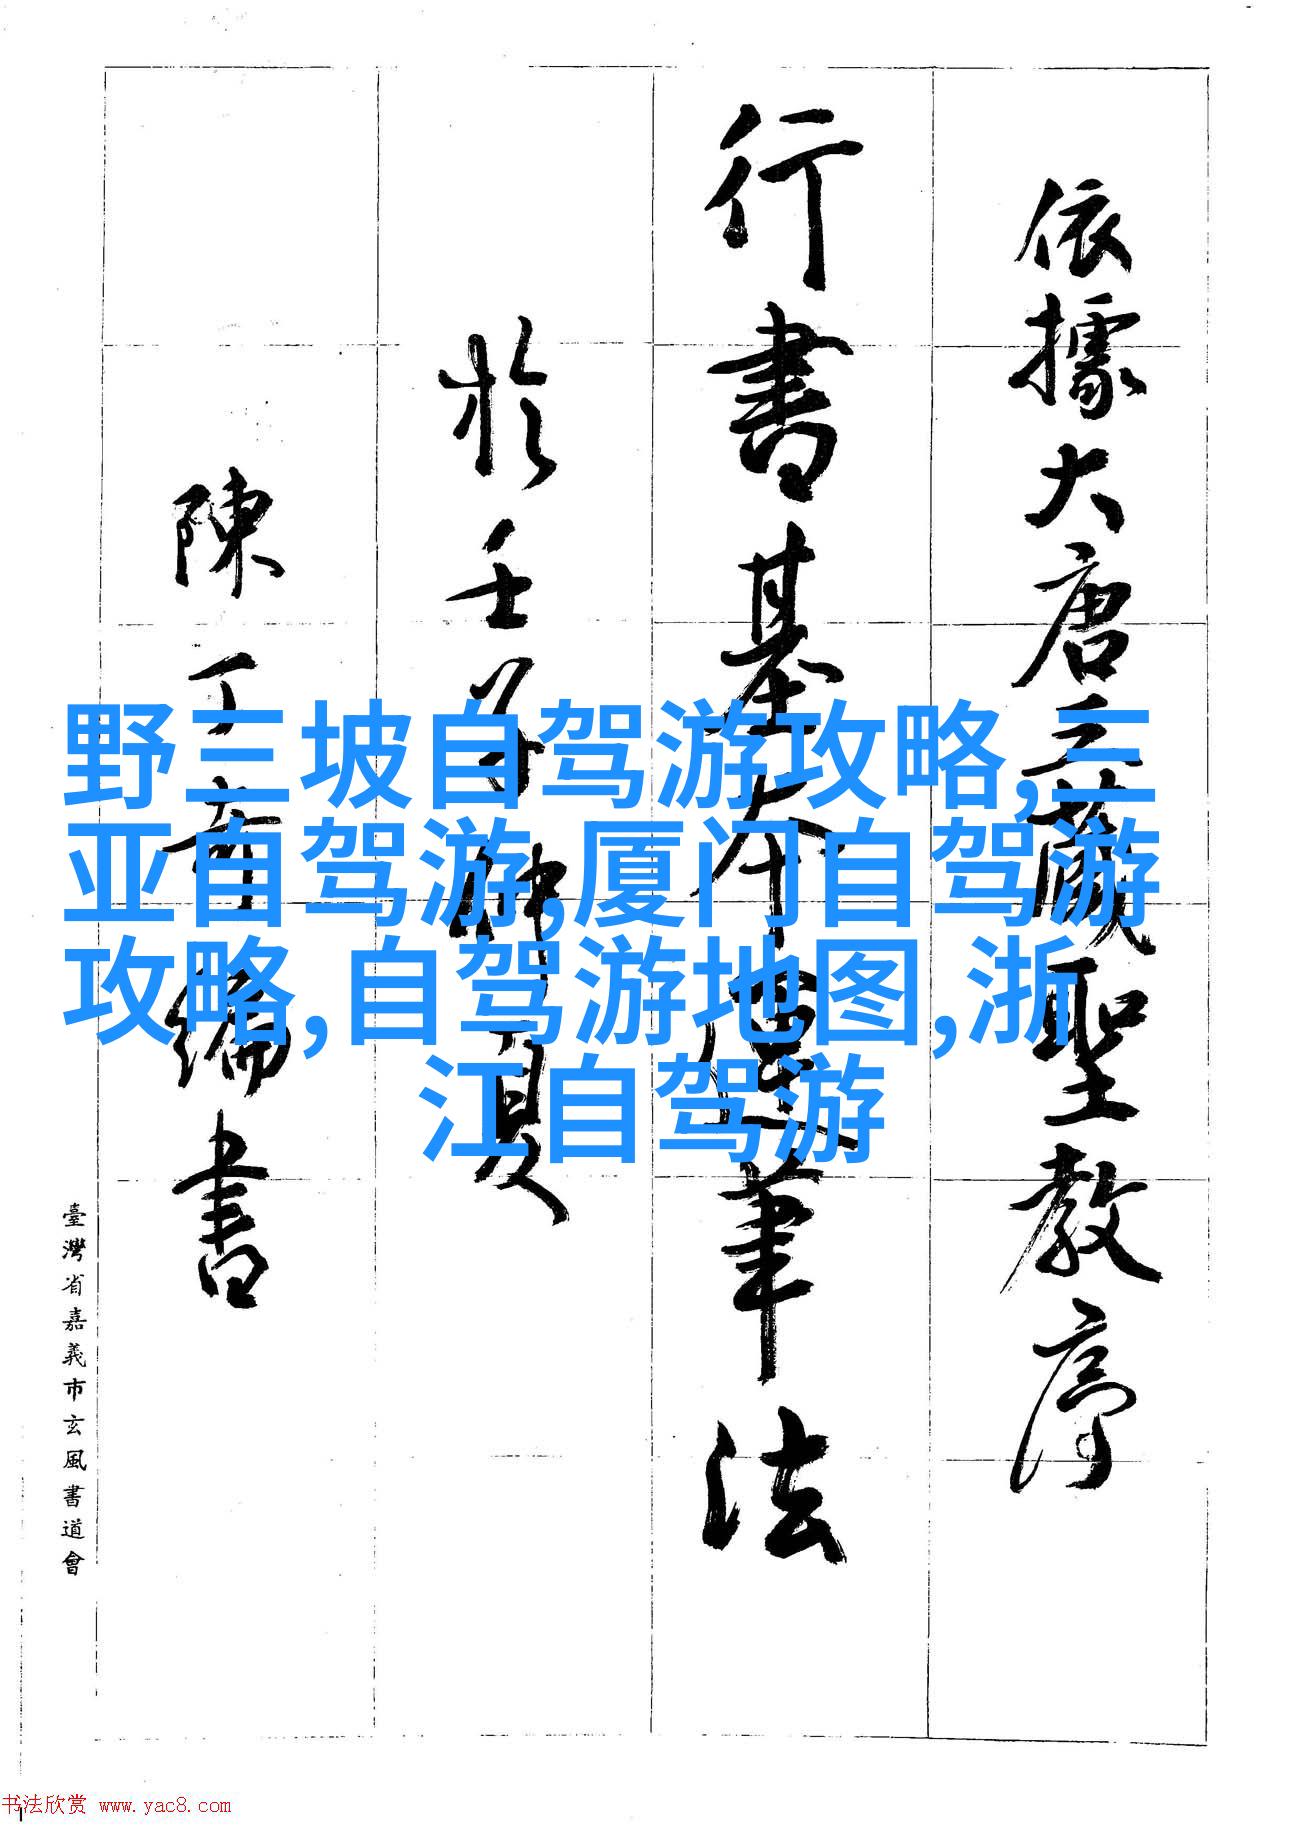 依據大唐三藏聖教序
行書基本運筆法
於壬子仲夏
陳丁奇編書
臺灣省嘉義市玄風書道會
野三坡自驾游攻略,三
亚自驾游,厦门自驾游
攻略,自驾游地图,浙
江自驾游
书法欣赏 www.yac8.com
1